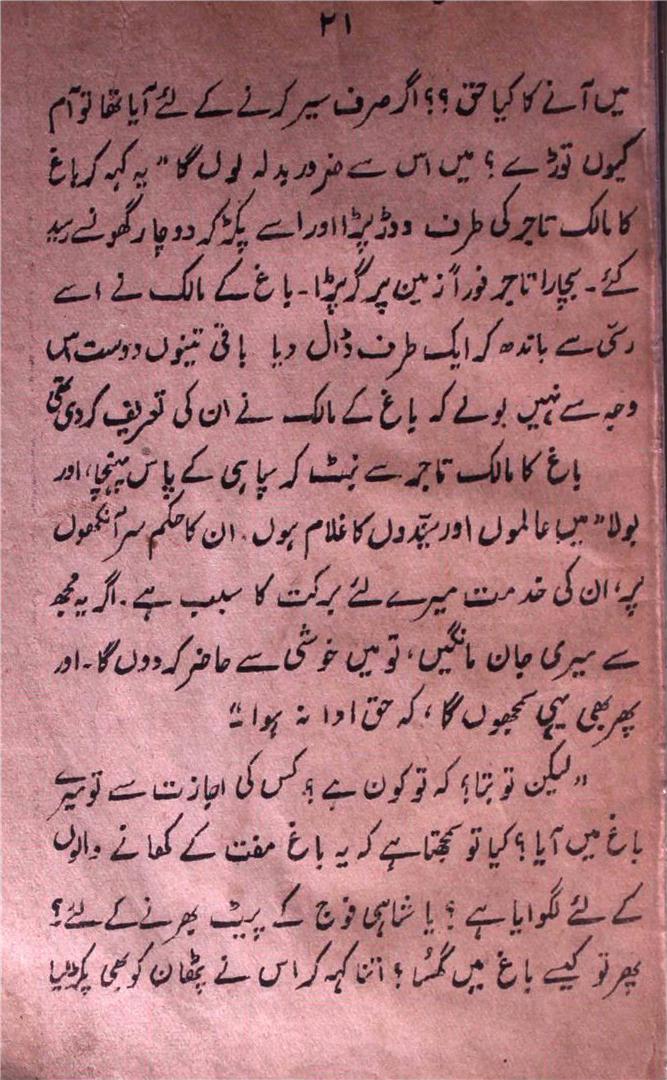 ۲۱
میں آنے کا کیا حق ؟؟ اگر صرف سیر کرنے کے لئے آیا تھا تو آم
کیوں توڑے ؟ میں اس سے ضرور بدلہ لوں گا” یہ کہہ کر باغ
کا مالک تاجر کی طرف دوڑ پڑا اور اسے پکڑ کر دو چار گھونسے رسید
کئے۔ بیچارا تاجر فوراً زمین پر گر پڑا۔ باغ کے مالک نے اسے
رسّی سے باندھ کر ایک طرف ڈال دیا باقی تینوں دوست اس
وجہ سے نہیں بولے کہ باغ کے مالک نے ان کی تعریف کر دی تھی
باغ کا مالک تاجر سے نبٹ کر سپاہی کے پاس پہنچا، اور
بولا ”میں عالموں اور سیّدوں کا غلام ہوں۔ ان کا حکم سر آنکھوں
پر، ان کی خدمت میرے لئے برکت کا سبب ہے۔ اگر یہ مجھ
سے میری جان مانگیں، تو میں خوشی سے حاضر کر دوں گا۔ اور
پھر بھی یہی سمجھوں گا، کہ حق ادا نہ ہوا“
”لیکن تو بتا؟ کہ تو کون ہے ؟ کس کی اجازت سے تو میرے
باغ میں آیا ؟ کیا تو سمجھتا ہے کہ یہ باغ مفت کے کھانے والوں
کے لئے لگوایا ہے ؟ یا شاہی فوج کے پیٹ بھرنے کے لئے؟
پھر تو کیسے باغ میں گھُسا ؟ اتنا کہہ کر اس نے پٹھان کو بھی پکڑ لیا